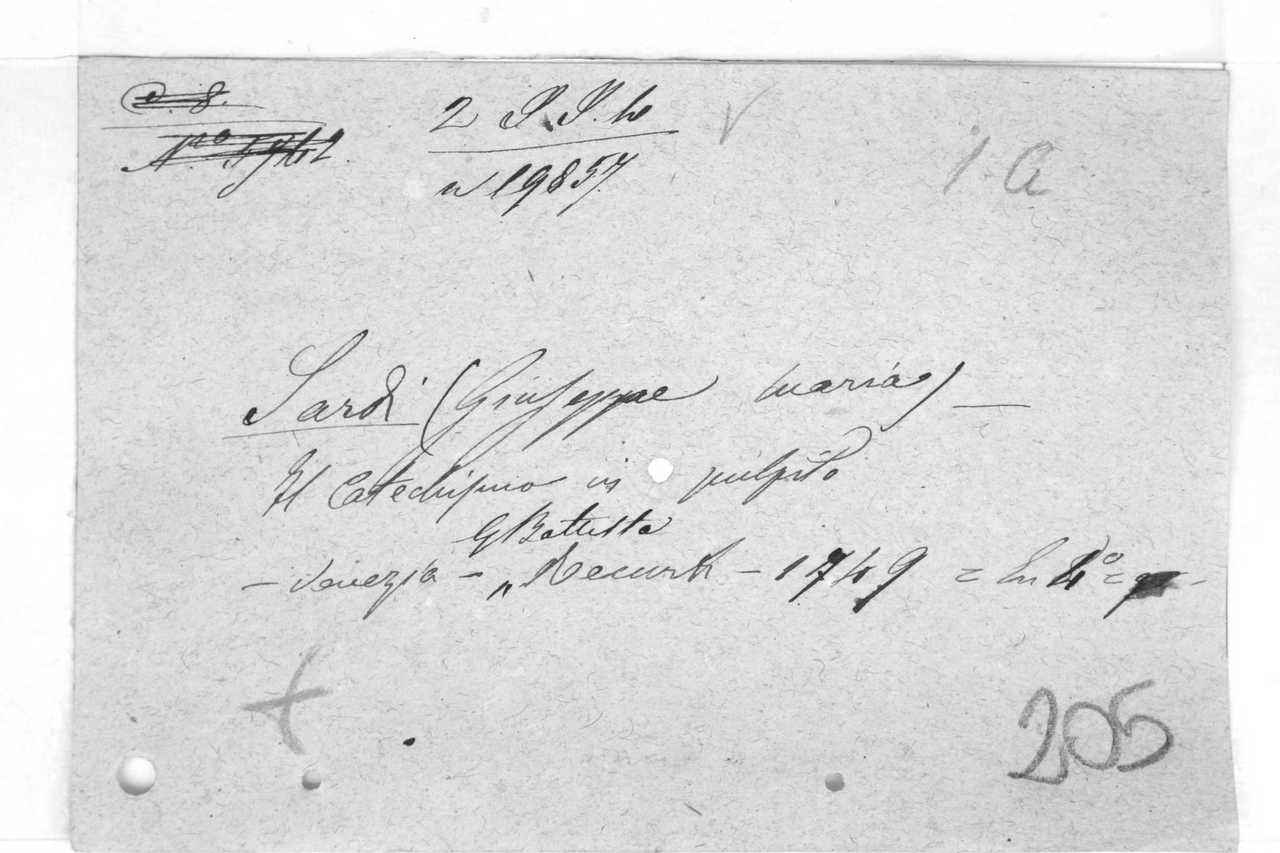 2 S. S. 6
n 19857.
1. a
Sardi (Giuseppe Maria) —
Il Catechismo in pulpito
G Battista
– Venezia – Recurti – 1749 = In 4° =
205